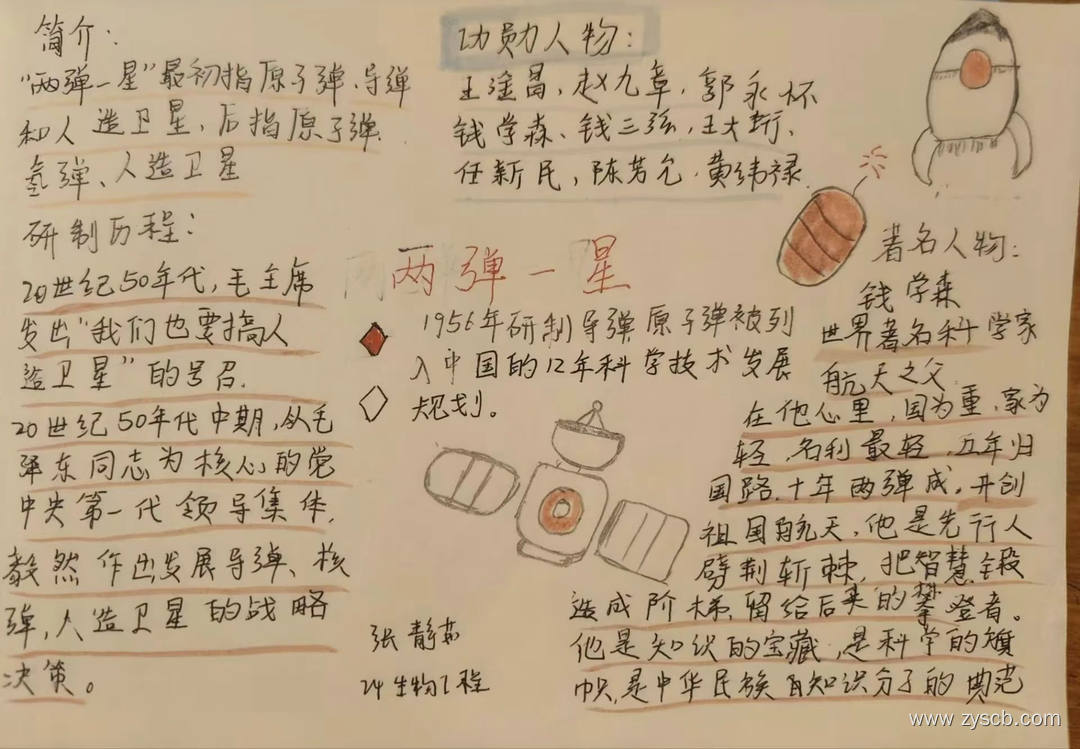 简介：
“两弹一星”最初指原子弹、导弹
和人造卫星，后指原子弹、
氢弹、人造卫星
研制历程：
20世纪50年代，毛主席
发出“我们也要搞人
造卫星”的号召.
20世纪50年代中期，从毛
泽东同志为核心的党
中央第一代领导集体，
毅然作出发展导弹、核
弹，人造卫星的战略
决策。
功勋人物：
王淦昌，赵九章，郭永怀
钱学森、钱三强，王大珩、
任新民，陈芳允，黄纬禄
两弹一星
1956年研制导弹原子弹被列
入中国的12年科学技术发展
规划。
著名人物：
钱学森
世界著名科学家
航天之父
在他心里，国为重，家为
轻，名利最轻，五年归
国路，十年两弹成，开创
祖国航天，他是先行人
劈荆斩棘，把智慧锻
造成阶梯，留给后来的攀登者。
他是知识的宝藏，是科学的旗
帜，是中华民族知识分子的典范
张静
24生物工程
www.zyscb.com